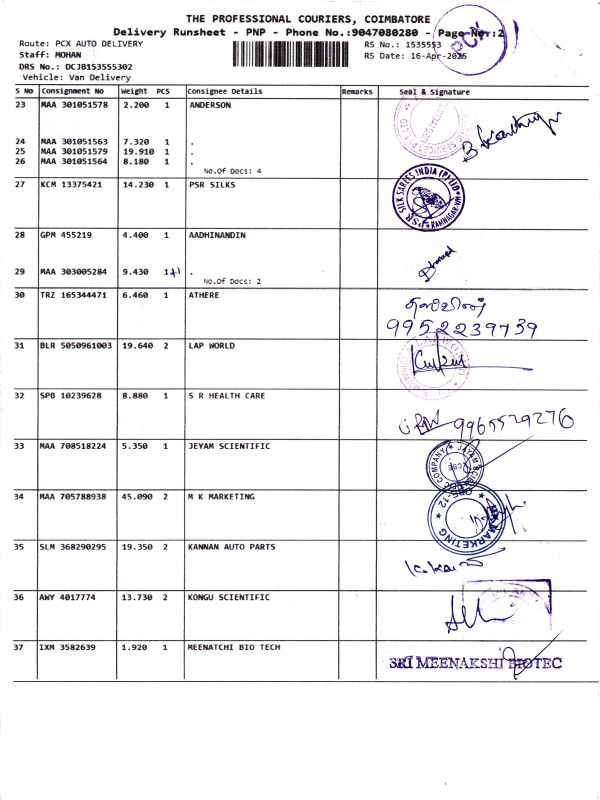 THE PROFESSIONAL COURIERS, COIMBATORE
Delivery Runsheet - PNP - Phone No.:9047080280 - Page Nor:2
Route: PCX AUTO DELIVERY
RS No.: 1535553
Staff: MOHAN
RS Date: 16-Apr-2025
DRS No.: DCJB153555302
Vehicle: Van Delivery
S No Consignment No Weight PCS Consignee Details Remarks Seal & Signature
23 MAA 301051578 2.200 1 ANDERSON
24 MAA 301051563 7.320 1 .
25 MAA 301051579 19.910 1 .
26 MAA 301051564 8.180 1 .
No.Of Docs: 4
27 KCM 13375421 14.230 1 PSR SILKS
PSR SILK SAREES INDIA (P) LTD
28 GPM 455219 4.400 1 AADHINANDIN
29 MAA 303005284 9.430 1+1 .
No.Of Docs: 2
30 TRZ 165344471 6.460 1 ATHERE
9952239739
31 BLR 5050961003 19.640 2 LAP WORLD
32 SPB 10239628 8.880 1 S R HEALTH CARE
9965529276
33 MAA 708518224 5.350 1 JEYAM SCIENTIFIC
34 MAA 705788938 45.090 2 M K MARKETING
MARKETING
35 SLM 368290295 19.350 2 KANNAN AUTO PARTS
36 AWY 4017774 13.730 2 KONGU SCIENTIFIC
37 IXM 3582639 1.920 1 MEENATCHI BIO TECH
SRI MEENAKSHI BIOTEC